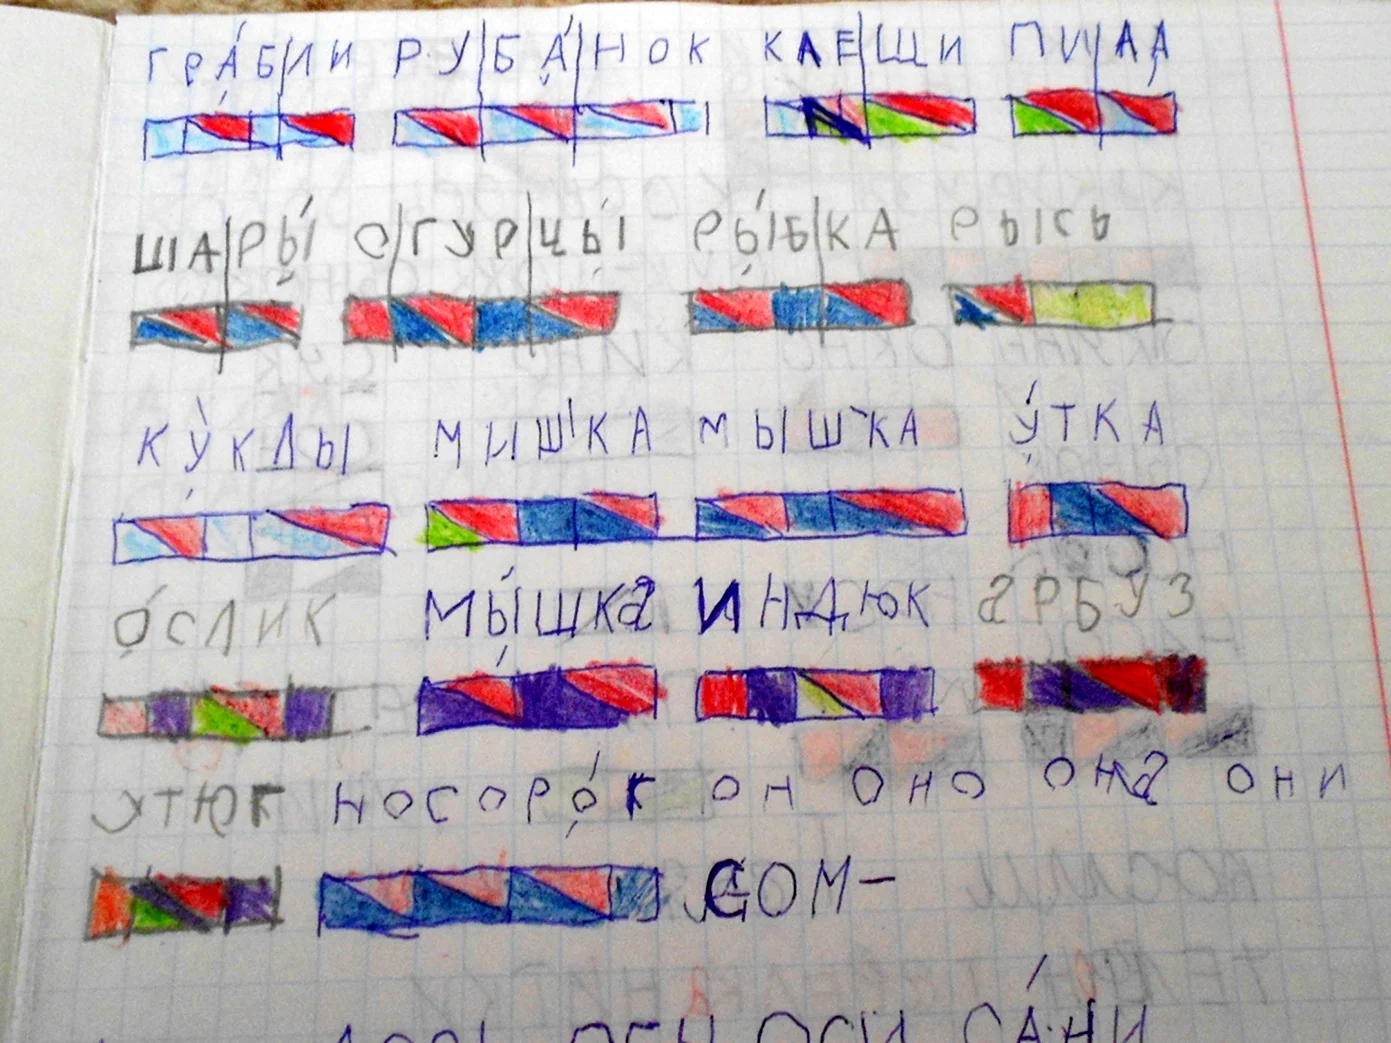 ГРА́Б|ИИ РУ|БА́|НОК КАЕ|ЩИ ПИ|АА
ША|РЫ́ О|ГУР|ЦЫ́ РЫ́Б|КА РЫСЬ
КУ́КЛЫ МИШКА МЫШКА У́ТКА
О́СЛИК МЫ́ШКА ИНДЮК АРБУЗ
УТЮГ НОСОРО́Г ОН ОНО ОНА ОНИ
СОМ-
ОСИ СА́НИ